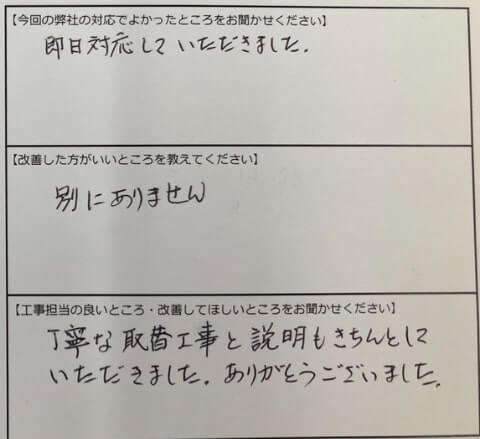 【今回の弊社の対応でよかったところをお聞かせください】
即日対応していただきました.
【改善した方がいいところを教えてください】
別にありません
【工事担当の良いところ・改善してほしいところをお聞かせください】
丁寧な取替工事と説明もきちんとして
いただきました. ありがとうございました.